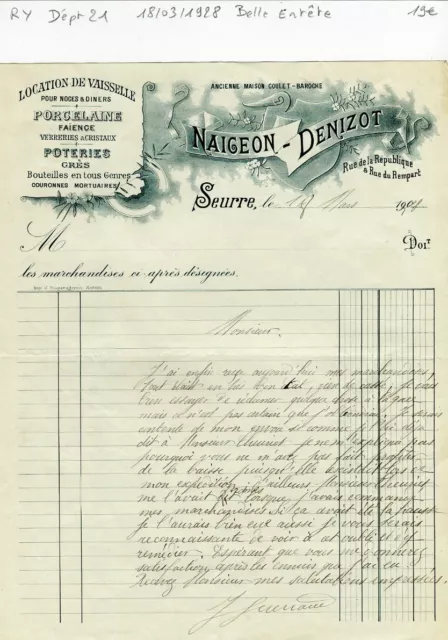 RY Dépt 21 18/03/1928 Belle Entête 19€
LOCATION DE VAISSELLE
POUR NOCES & DINERS
PORCELAINE
FAÏENCE
VERRERIES & CRISTAUX
POTERIES
GRÈS
Bouteilles en tous Genres
COURONNES MORTUAIRES
ANCIENNE MAISON GOULET-BAROCHE
NAIGEON-DENIZOT
Rue de la République
& Rue du Rempart
Seurre, le Mars 190
M Doit
les marchandises ci-après désignées.
Monsieur.
J'ai enfin reçu aujourd'hui mes marchandises,
tout était en très bon état, rien de cassé, je vais
bien essayer de réclamer quelque chose à la gare
mais il n'est pas certain que j'obtienne. Je serais
contente de mon envoi si comme je l'ai déjà
dit à Monsieur je ne m'explique pas
pourquoi vous ne m'avez pas fait profiter
de la baisse puisqu'elle existait lors de
mon expédition d'ailleurs Monsieur
me l'avait dit lorsque j'avais commandé
mes marchandises. Si ça avait été la hausse
je l'aurais bien eue aussi je vous serais
reconnaissante de voir à cet oubli et d'y
remédier. Espérant que vous me donnerez
satisfaction après les ennuis que j'ai eu
Recevez Monsieur mes salutations empressées.